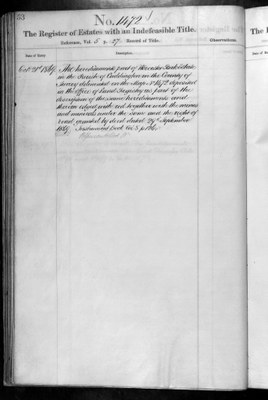 No. 1472
The Register of Estates with an Indefeasible Title.
Reference, Vol. 5 p. 27. Record of Title.
Date of Entry. Description. Observations.
Oct. 21st 1869. The hereditaments part of Worcester Park Estate
in the Parish of Cuddington in the County of
Surrey delineated on the Map deposited
in the Office of Land Registry as part of the
description of the same hereditaments and
thereon edged with red together with the mines
and minerals under the same and the right of
road granted by deed dated 29th September
1869.